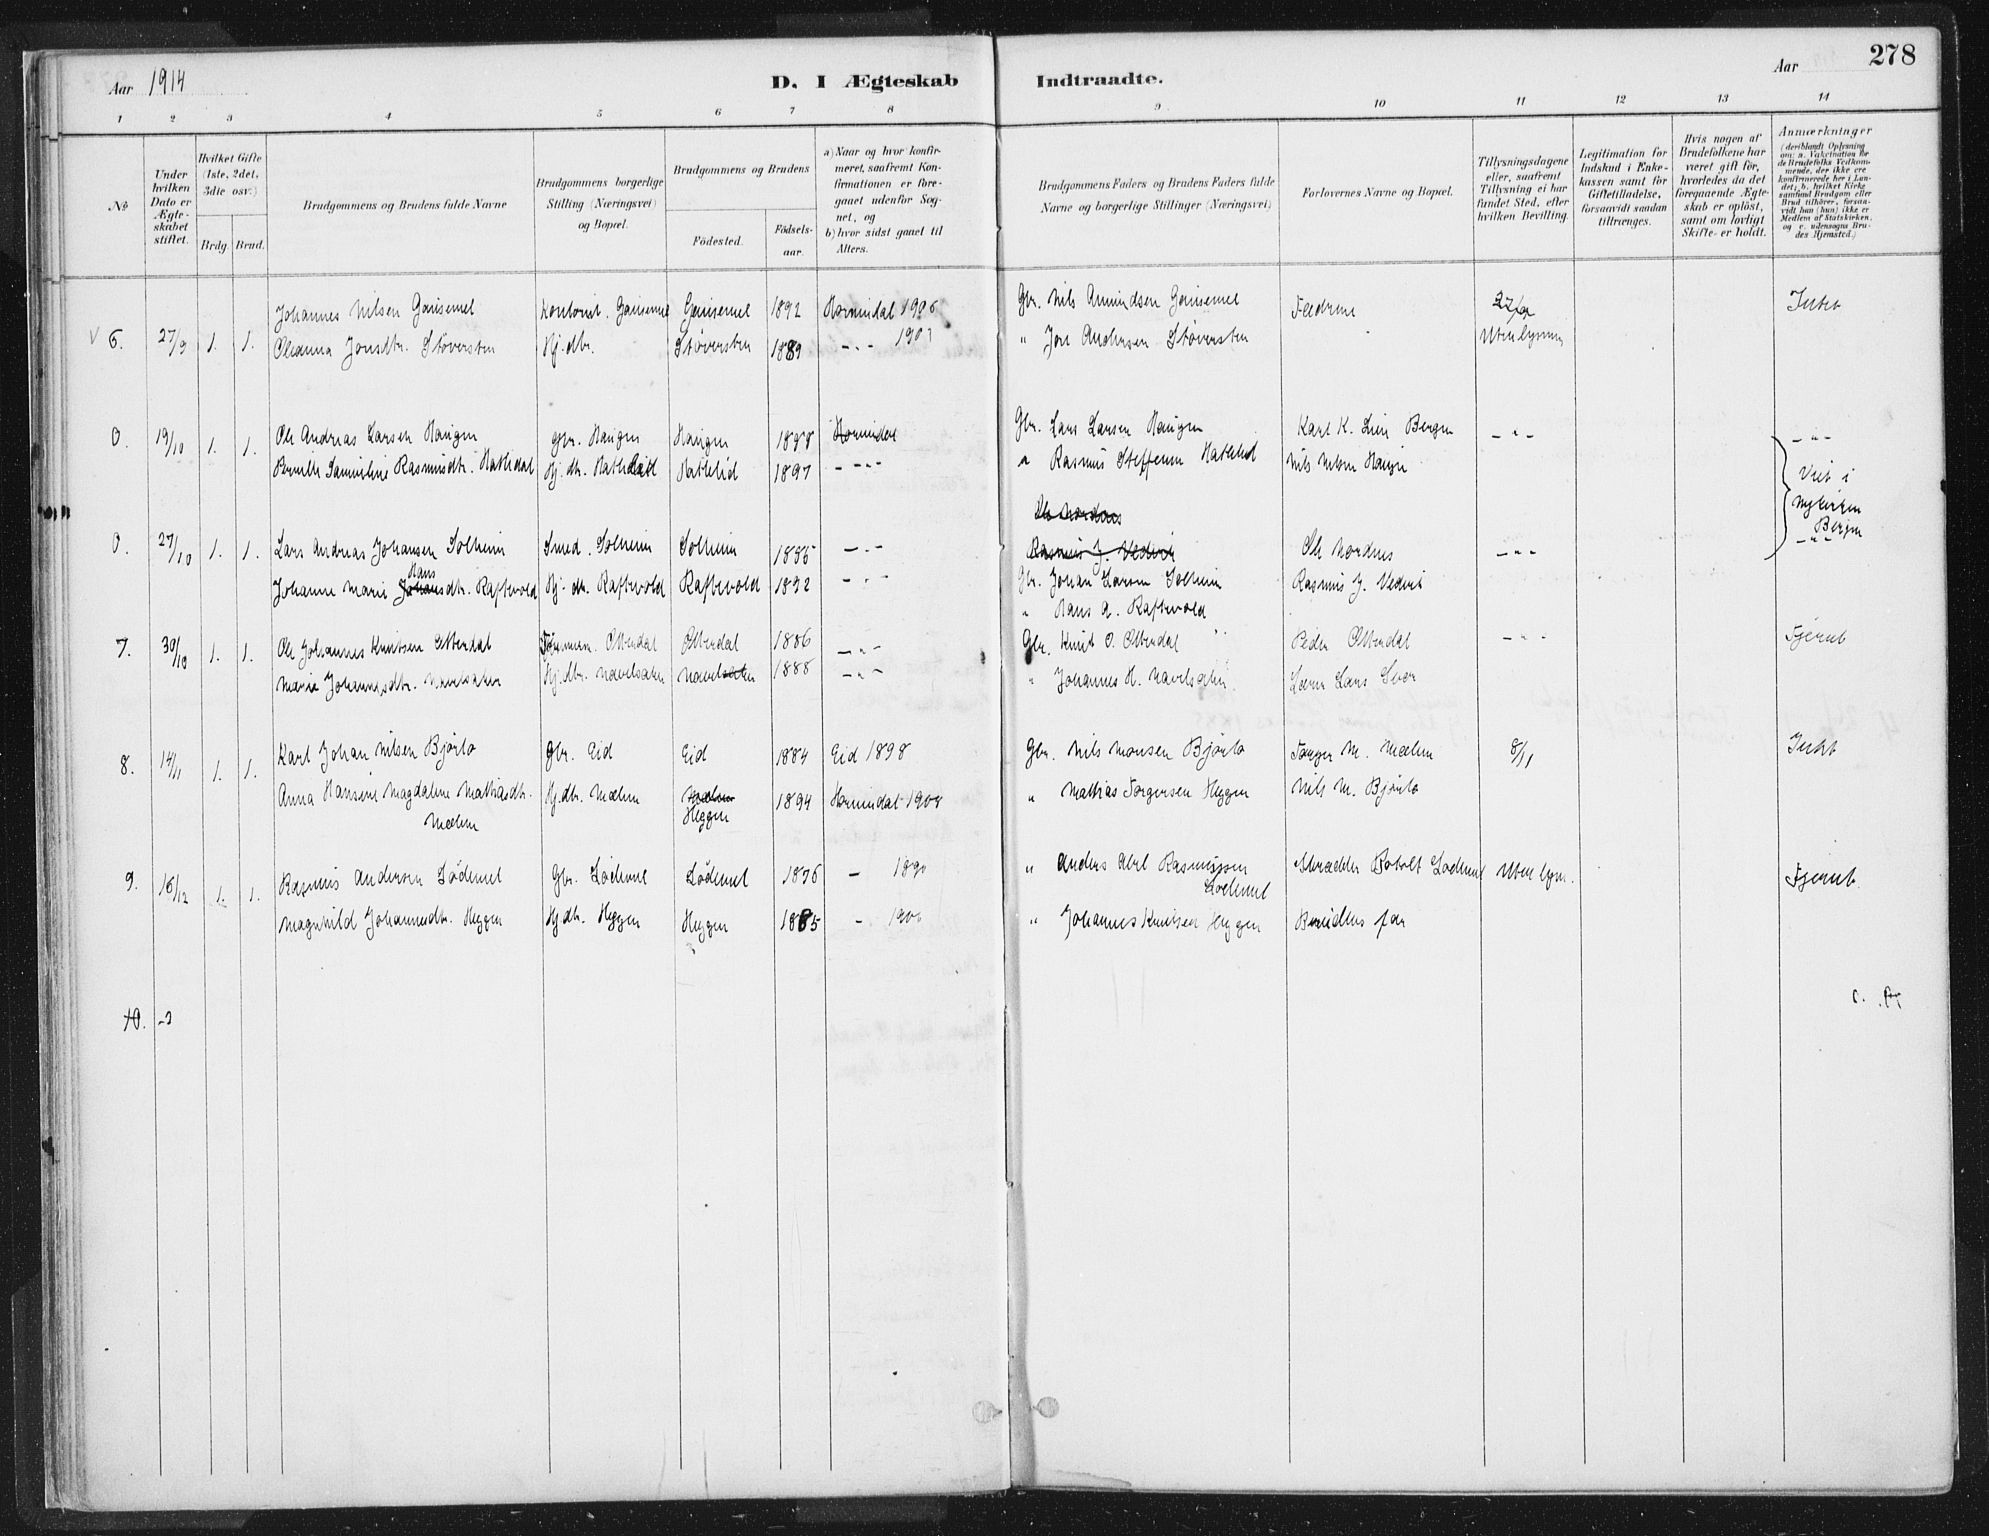 Aar 1914
D. I Ægteskab Indtraadte.
Aar
278
1 2 3 4 5 6 7 8 9 10 11 12 13 14
№
Under hvilken Dato er Ægteskabet stiftet.
Hvilket Gifte (1ste, 2det, 3die osv.)
Brdg. Brud.
Brudgommens og Brudens fulde Navne
Brudgommens borgerlige Stilling (Næringsvei) og Bopæl.
Brudgommens og Brudens
Fødested.
Fødselsaar.
a) Naar og hvor konfirmeret, saafremt Konfirmationen er foregaaet udenfor Sognet, og
b) hvor sidst gaaet til Alters.
Brudgommens Faders og Brudens Faders fulde Navne og borgerlige Stillinger (Næringsvei)
Forlovernes Navne og Bopæl.
Tillysningsdagene eller, saafremt Tillysning ei har fundet Sted, efter hvilken Bevilling.
Legitimation for Indskud i Enkekassen samt for Giftetilladelse, forsaavidt saadan tiltrænges.
Hvis nogen af Brudefolkene har været gift før, hvorledes da det foregaaende Ægteskab er opløst, samt om lovligt Skifte er holdt.
Anmærkninger (deriblandt Oplysning om: a. Vakcination for de Brudefolks Vedkommende, der ikke ere konfirmerede her i Landet; b. hvilket Kirkesamfund Brudgom eller Brud tilhører, forsaavidt han (hun) ikke er Medlem af Statskirken, og c. udensogns Brudes Hjemsted.)
Johannes Nilsen Gausemel Gausemel Gausemel 1892 Hornindal 1906 Gbr. Nils Amundsen Gausemel Fædrene 27/9
6. 27/9 1. 1. Oleanna Jonsdtr. Støversten Hj. dtr. Støversten 1889 -"- 1903 " Jon Andersen Støversten Uten lysning
0. 19/10 1. 1. Ole Andreas Larsen Haugen Gbr. Haugen Haugen 1888 Hornindal Gbr. Lars Larsen Haugen Karl K. Lien Bergen -"- -"-
Rasmusdtr. Hj. dtr. Hatlelid 1897 -"- " Rasmus Steffensen Hatlelid Nils Nilsen Haugen
Viet i Nykirken Bergen
Ole Nordnes
0. 27/10 1. 1. Lars Andreas Johansen Solheim Smed. Solheim Solheim 1886 -"- Rasmus J. Vedvik Ole Nordnes -"- -"-
Johanne Marie Johansdtr. Hans Raftevold Hj. dtr. Raftevold Raftevold 1892 -"- Gbr. Johan Larsen Solheim Rasmus J. Vedvik
" Hans A. Raftevold
7. 30/10 1. 1. Ole Johannes Knutsen Otterdal Tømmerm. Otterdal Otterdal 1886 -"- Gbr. Knut O. Otterdal Peder Otterdal -"- Fjernt
Marie Johannesdtr. Navelsaker Hj. dtr. Navelsaker Navelsaker 1888 -"- " Johannes H. Navelsaker. Lærer Lars Svor
8. 14/11 1. 1. Karl Johan Nilsen Bjørlo Gbr. Eid Eid 1884 Eid 1898 Gbr. Nils Monsen Bjørlo Torger M. Mælen 8/11
Anna Hansine Magdalene Mathiasdtr. Mælen Hj. dtr. Mælen Mælen Heggen 1894 Hornindal 1908 " Mathias Torgersen Heggen Nils M. Bjørlo
9. 16/12 1. 1. Rasmus Andersen Lødemel Gbr. Lødemel Lødemel 1876 - 1890 " Anders Abel Rasmussen Lødemel Uten lysn. Fjernt
Magnhild Johannesdtr. Heggen Hj. dtr. Heggen Heggen 1885 - 1900 " Johannes Knutsen Heggen Brudens far
10.